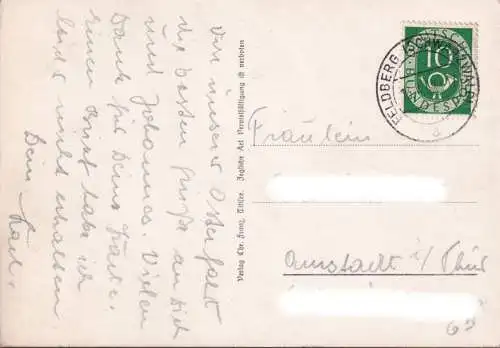 Von unserer Osterfahrt
die besten Grüße an Dich
und Johannes. Vielen
Dank für Deine Karte.
Einen Brief habe ich
nicht erhalten
Dein Karl.
Verlag Chr. Franz, Titisee. Jegliche Art Vervielfältigung ist verboten
FELDBERG (SCHWARZWALD)
DEUTSCHE BUNDESPOST
10
a
Fräulein
Arnstadt i/Thür